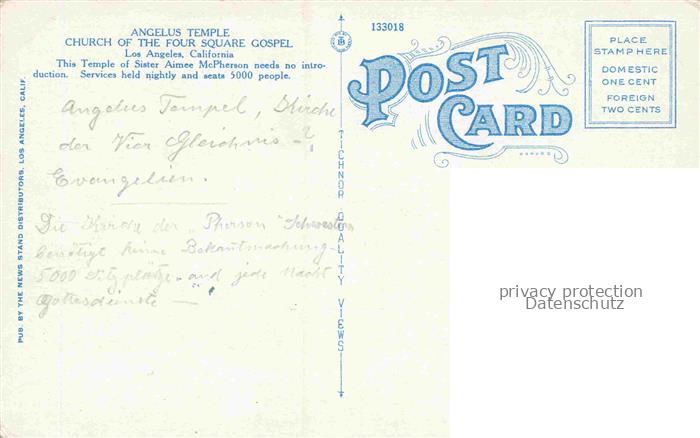 ANGELUS TEMPLE
CHURCH OF THE FOUR SQUARE GOSPEL
Los Angeles, California
This Temple of Sister Aimee McPherson needs no intro-
duction. Services held nightly and seats 5000 people.
Angelus Tempel, Kirche
der Vier Gleichnis -?
Evangelien.
Die Kirche der "Pherson" Schwestern
benötigt keine Bekantmachung -
5000 Sitzplätze and jede Nacht
Gottesdienste —
PUB. BY THE NEWS STAND DISTRIBUTORS, LOS ANGELES, CALIF.
TICHNOR QUALITY VIEWS
133018
POST
CARD
PLACE
STAMP HERE
DOMESTIC
ONE CENT
FOREIGN
TWO CENTS
privacy protection
Datenschutz